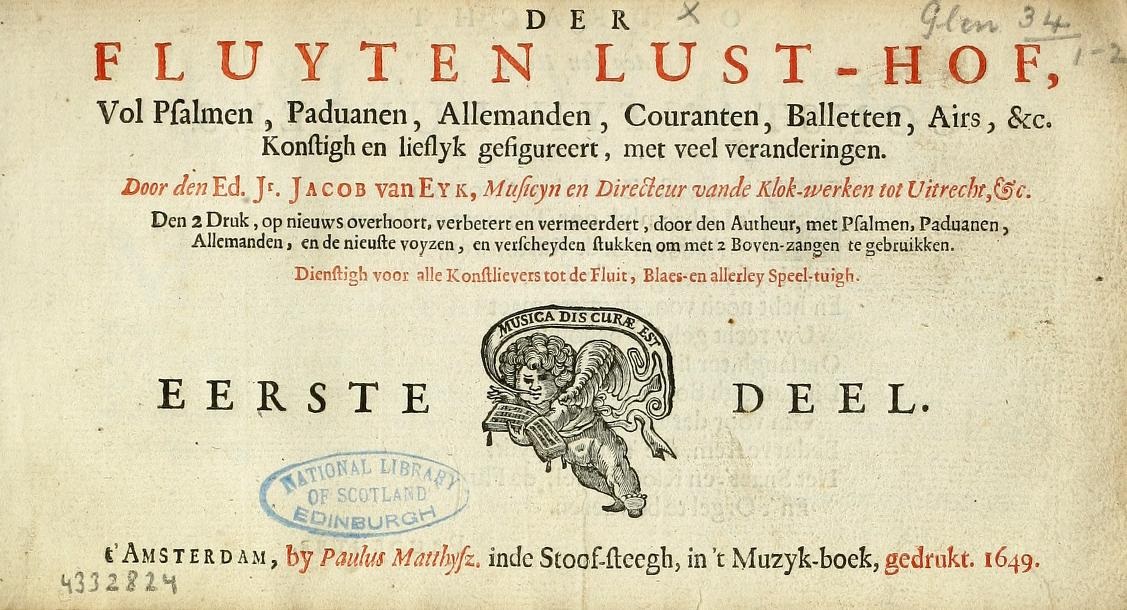 DER X
Glen 34
1-2
FLUYTEN LUST-HOF,
Vol Pſalmen, Paduanen, Allemanden, Couranten, Balletten, Airs, &c.
Konſtigh en lieflyk gefigureert, met veel veranderingen.
Door den Ed. Jr. JACOB van EYK, Muſicyn en Directeur vande Klok-werken tot Uitrecht, &c.
Den 2 Druk, op nieuws overhoort, verbetert en vermeerdert, door den Autheur, met Pſalmen, Paduanen,
Allemanden, en de nieuſte voyzen, en verſcheyden ſtukken om met 2 Boven-zangen te gebruikken.
Dienſtigh voor alle Konſtlievers tot de Fluit, Blaes- en allerley Speel-tuigh.
MUSICA DIS CURÆ EST
EERSTE DEEL.
NATIONAL LIBRARY
OF SCOTLAND
EDINBURGH
t'AMSTERDAM, by Paulus Matthyſz. inde Stoof-ſteegh, in 't Muzyk-boek, gedrukt. 1649.
4332824